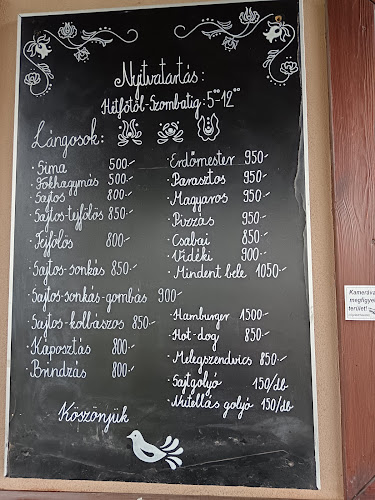 Nyitvatartás:
Hétfőtől-Szombatig: 5⁰⁰-12⁰⁰
Lángosok:
·Sima 500-
·Fokhagymás 500-
·Sajtos 800-
·Sajtos-tejfölös 850-
·Tejfölös 800-
·Sajtos-sonkás 850-
·Sajtos-sonkás-gombás 900-
·Sajtos-kolbászos 850-
·Káposztás 800-
·Brindzás 800-
Köszönjük
·Erdőmester 950-
·Parasztos 950-
·Magyaros 950-
·Pizzás 950-
·Csabai 850-
·Vidéki 900-
·Mindent bele 1050-
·Hamburger 1500-
·Hot-dog 850-
·Melegszendvics 850-
·Sajtgolyó 150/db
·Nutellás golyó 150/db
Kameráva
megfigyel
terület!